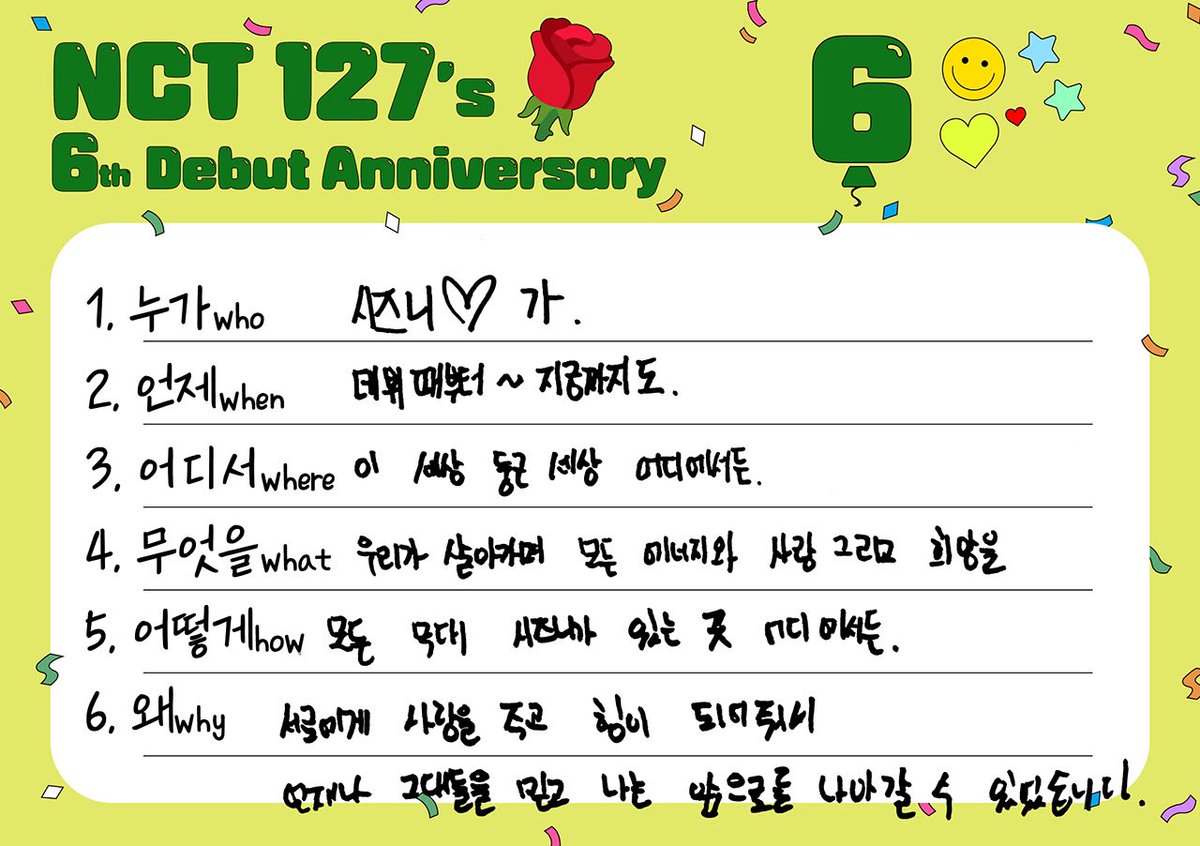 NCT 127's
6th Debut Anniversary
6
1. 누가who 시즈니♡가.
2. 언제when 데뷔 때부터 ~ 지금까지도.
3. 어디서where 이 세상 둥근 세상 어디에서든.
4. 무엇을what 우리가 살아가며 모든 에너지와 사랑 그리고 희망을
5. 어떻게how 모든 무대 시즈니가 있는 곳 어디에서든.
6. 왜why 서로에게 사랑을 주고 힘이 되어줘서
언제나 그대들을 믿고 나는 앞으로를 나아갈 수 있었습니다.